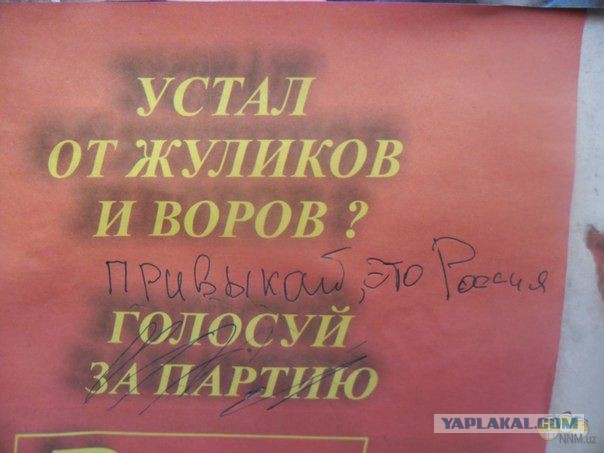 УСТАЛ
ОТ ЖУЛИКОВ
И ВОРОВ ?
привыкай, это Россия
ГОЛОСУЙ
ЗА ПАРТИЮ
YAPLAKAL.COM
NNM.uz